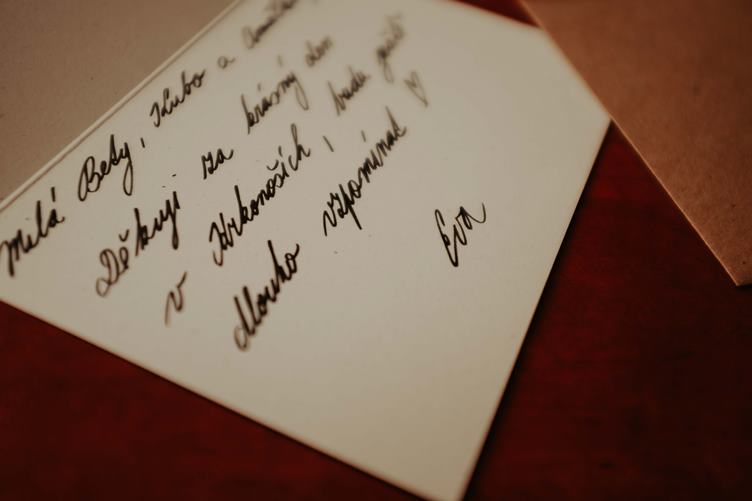 Milá Bety, Kubo a
Děkuji za krásný den
v Krkonoších, budu ještě
dlouho vzpomínat ♡
Eva